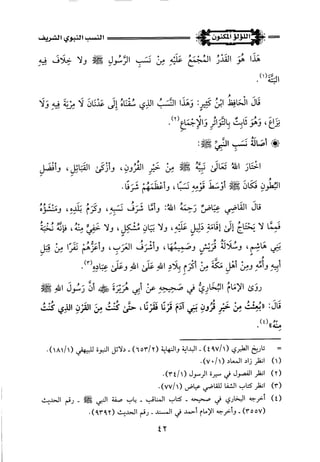 اللؤلؤ المكنون
النسب النبوي الشريف
هَذَا هُوَ القَدْرُ المُجْمَعُ عَلَيْهِ مِنْ نَسَبِ الرَّسُولِ ﷺ ولا خِلَافَ فِيهِ
البَتَّةَ(١).
قَالَ الْحَافِظُ ابْنُ كَثِيرٍ: وَهَذَا النَّسَبُ الذِي سُقْنَاهُ إِلَى عَدْنَانَ لَا مِرْيَةَ فِيهِ وَلَا
نِزَاعَ، وَهُوَ ثَابِتٌ بِالتَّوَاتُرِ وَالْإِجْمَاعِ(٢).
* أَصَالَةُ نَسَبِ النَّبِيِّ ﷺ:
اخْتَارَ اللهُ تَعَالَى نَبِيَّهُ ﷺ مِنْ خَيْرِ القُرُونِ، وأزْكَى القَبَائِلِ، وأفْضَلِ
البُطُونِ فَكَانَ ﷺ أوْسَطَ قَوْمِهِ نَسَبًا، وأعْظَمَهُمْ شَرَفًا.
قَالَ القَاضِي عِيَاضٌ رَحِمَهُ اللهُ: وأمَّا شَرَفُ نَسَبِهِ، وكَرَمُ بَلَدِهِ، ومَنْشَؤُهُ
فَمِمَّا لا يَحْتَاجُ إِلَى إقَامَةِ دَلِيلٍ عَلَيْهِ، ولا بَيَانِ مُشْكِلٍ، ولا خَفِيٍّ مِنْهُ، فإنَّهُ نُخْبَةُ
بَنِي هَاشِمٍ، وسُلَالَةُ قُرَيْشٍ وصَمِيمُهَا، وأشْرَفُ العَرَبِ، وأعَزُّهُمْ نَفَرًا مِنْ قِبَلِ
أبِيهِ وأُمِّهِ ومِنْ أهْلِ مَكَّةَ مِنْ أكْرَمِ بِلَادِ اللهِ عَلَى اللهِ وعَلَى عِبَادِهِ(٣).
رَوَى الإمَامُ البُخَارِيُّ فِي صَحِيحِهِ عَنْ أبِي هُرَيْرَةَ ﷺ أنَّ رَسُولَ اللهِ ﷺ
قَالَ: «بُعِثْتُ مِنْ خَيْرِ قُرُونِ بَنِي آدَمَ قَرْنًا فَقَرْنًا، حَتَّى كُنْتُ مِنَ القَرْنِ الذِي كُنْتُ
مِنْهُ»(٤).
= تاريخ الطبري (٤٩٧/١) ـ البداية والنهاية (٦٥٣/٢) ـ دلائل النبوة للبيهقي (١٨١/١).
(١) انظر زاد المعاد (٧٠/١).
(٢) انظر الفصول في سيرة الرسول (٣٤/١).
(٣) انظر كتاب الشفا للقاضي عياض (٧٧/١).
(٤) أخرجه البخاري في صحيحه ـ كتاب المناقب ـ باب صفة النبي ﷺ ـ رقم الحديث
(٣٥٥٧) ـ وأخرجه الإمام أحمد في المسند ـ رقم الحديث (٩٣٩٢).
٤٢